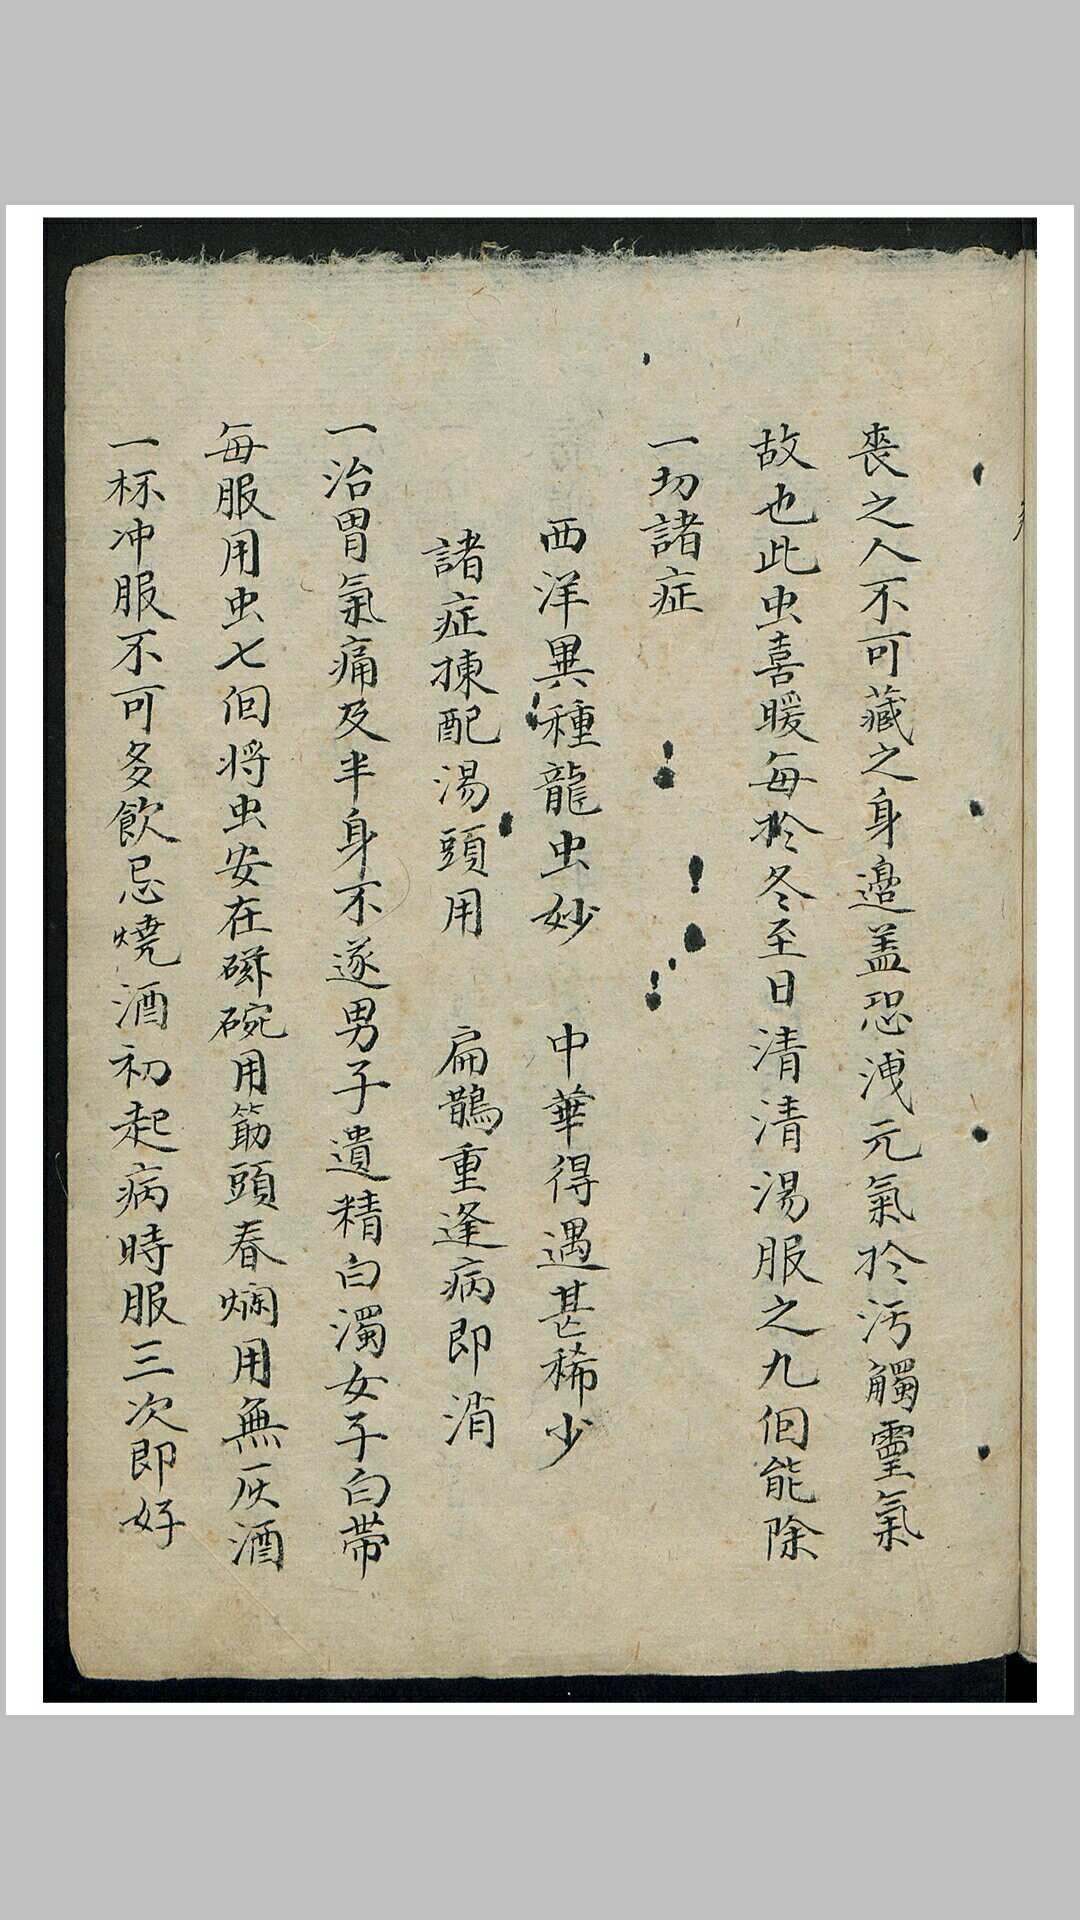 喪之人不可藏之身邉盖恐洩元氣扵汚觸靈氣
故也此虫喜暖每扵冬至日清清湯服之九個能除
一切諸症
西洋異種龍虫妙 中華得遇甚稀少
諸症揀配湯頭用 扁鵲重逢病即消
一治胃氣痛及半身不遂男子遺精白濁女子白帶
每服用虫七個将虫安在磁碗用筯頭舂爛用無灰酒
一杯冲服不可多飲忌燒酒初起病時服三次即好